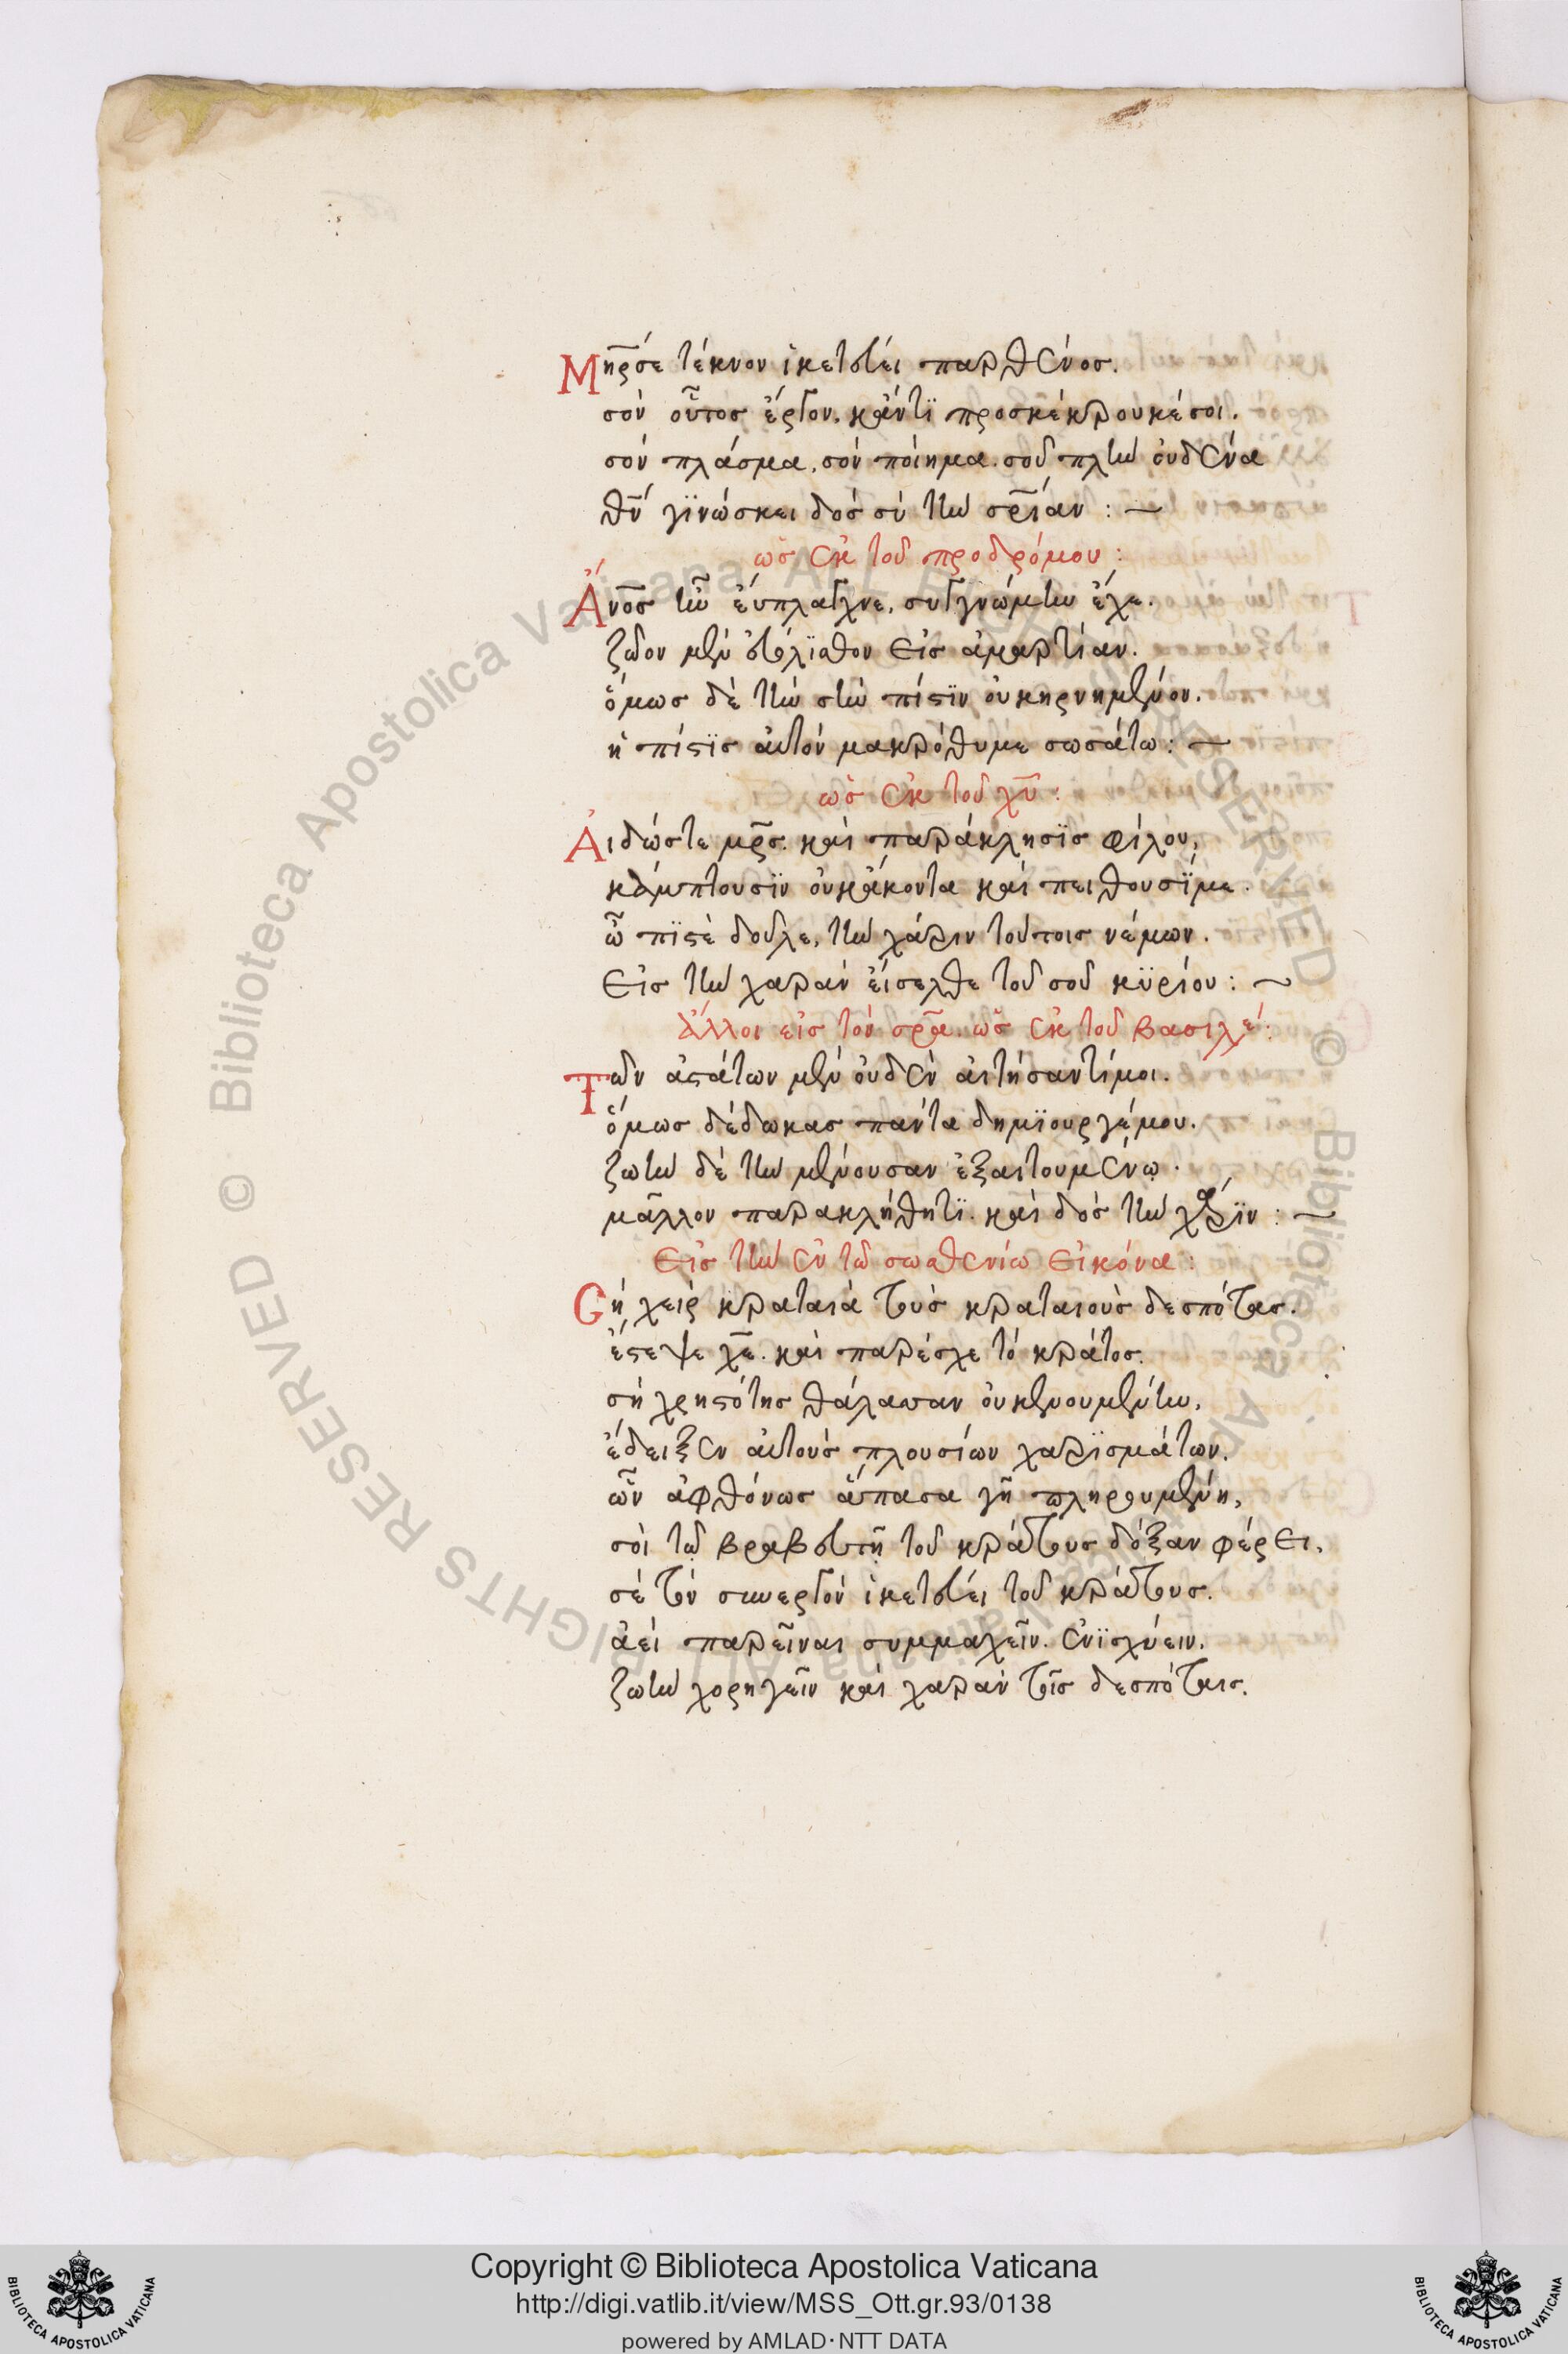 Μη̅ρ σὲ τέκνον ἱκετεύει παρθένος.
σὸν οὗτος ἔργον. κἄν τϊ προσκέκρουκέ σοι.
σὸν πλάσμα, σὸν ποίημα. σοῦ πλὴν οὐδένα
θ̅ν γϊνώσκει δὸς σὺ τὴν σ̅ρίαν : —
ὡς ἐκ τοῦ προδρόμου :
Ἄν̅ος ἦν εὔσπλαγχνε, συγγνώμην ἔχε.
ζῶον μὲν εὐόλϊσθον εἰς ἁμαρτίαν.
ὅμως δὲ τὴν σὴν πίστϊν οὐκ ἠρνημένον.
ἡ πίστϊς αὐτὸν μακρόθυμε σωσάτω : —
ὡς ἐκ τοῦ χ̅υ :
Αἰδώς τε μ̅ρς. καὶ παράκλησϊς φίλου,
κάμπτουσϊν οὐκ ἄκοντα καὶ πείθουσϊ με.
ὦ πϊστὲ δοῦλε, τὴν χάριν τούτοις νέμων.
εἰς τὴν χαρὰν εἴσελθε τοῦ σοῦ κϋρίου : ~
ἄλλοι εἰς τὸν σ̅ρα. ὡς ἐκ τοῦ βασιλέ :
Τῶν ἀστάτων μὲν οὐδὲν αἰτήσαντί μοι.
ὅμως δέδωκας πάντα δημϊουργέ μου.
ζωὴν δὲ τὴν μένουσαν ἐξαιτουμένῳ.
μᾶλλον παρακλήθητϊ. καὶ δὸς τὴν χάρϊν : ~
εἰς τὴν ἐν τῶ σωσθενίω εἰκόνα :
Σὴ χεὶρ κραταιὰ τοὺς κραταιοὺς δεσπότας.
ἔστεψε χ̅ε. καὶ παρέσχε τὸ κράτος.
σὴ χρηστότης θάλασσαν οὐ κενουμένην,
ἔδειξεν αὐτοὺς πλουσίων χαρϊσμάτων.
ὧν ἀφθόνως ἅπασα γῆ πληρουμένη,
σοὶ τῶ βραβευτῆ τοῦ κράτους δόξαν φέρει,
σὲ τὸν συνεργὸν ἱκετεύει τοῦ κράτους.
ἀεὶ παρεῖναι συμμαχεῖν. ἐνϊσχύειν.
ζωὴν χορηγεῖν καὶ χαρὰν τοῖς δεσπόταις.
Copyright © Biblioteca Apostolica Vaticana
http://digi.vatlib.it/view/MSS_Ott.gr.93/0138
powered by AMLAD·NTT DATA